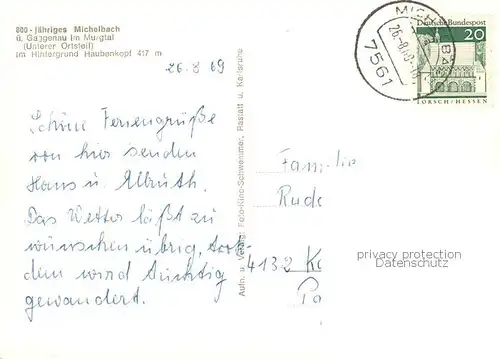 800-jähriges Michelbach
ü. Gaggenau im Murgtal
(Unterer Ortsteil)
im Hintergrund Haubenkopf 417 m
26.8.69
Schöne Feriengrüße
von hier senden
Hans u. Allruth.
Das Wetter läßt zu
wünschen übrig, trotz-
dem wird tüchtig
gewandert.
Auto. u. Verlag: Foto-Kino-Schwemmer, Rastatt u. Karlsruhe
MICH
26.-8.69
7561
Deutsche Bundespost
20
LORSCH/HESSEN
Familie
Rude
4132 K
privacy protection
Datenschutz